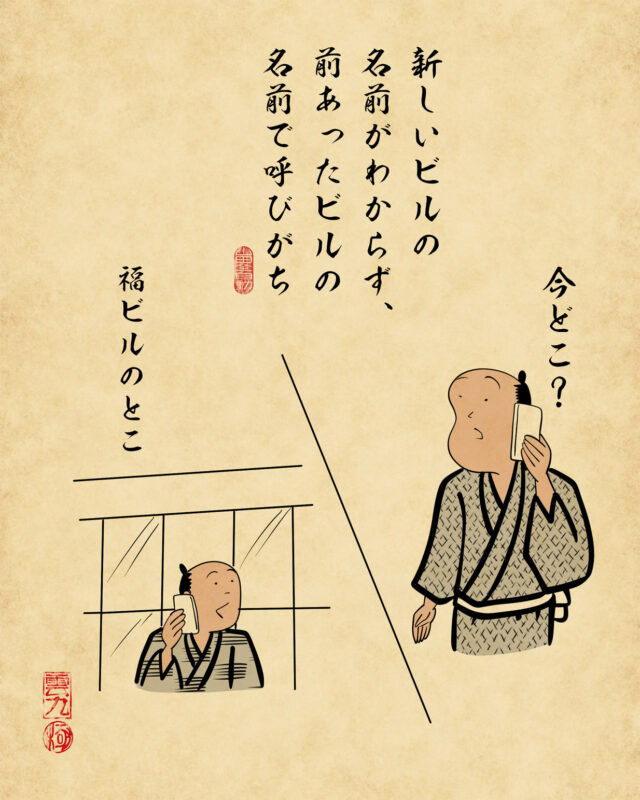 新しいビルの
名前がわからず、
前あったビルの
名前で呼びがち
今どこ？
福ビルのとこ